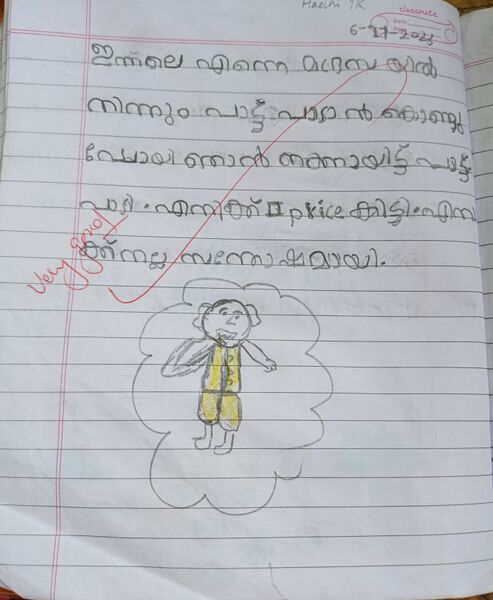 Haashi TK
classmate
Date
6-11-2023
ഇന്നലെ എന്നെ മദ്രസയിൽ
നിന്നും പാട്ട് പാടാൻ കൊണ്ടു
പോയി ഞാൻ നന്നായിട്ട് പാട്ട്
പാടി. എനിക്ക് price കിട്ടി. എനി
ക്ക് നല്ല സന്തോഷമായി.
Very good